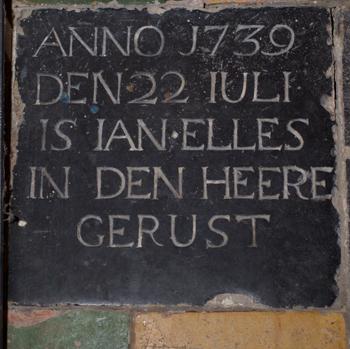 ANNO J739
DEN 22 IULI
IS IAN·ELLES
IN DEN HEERE
GERUST